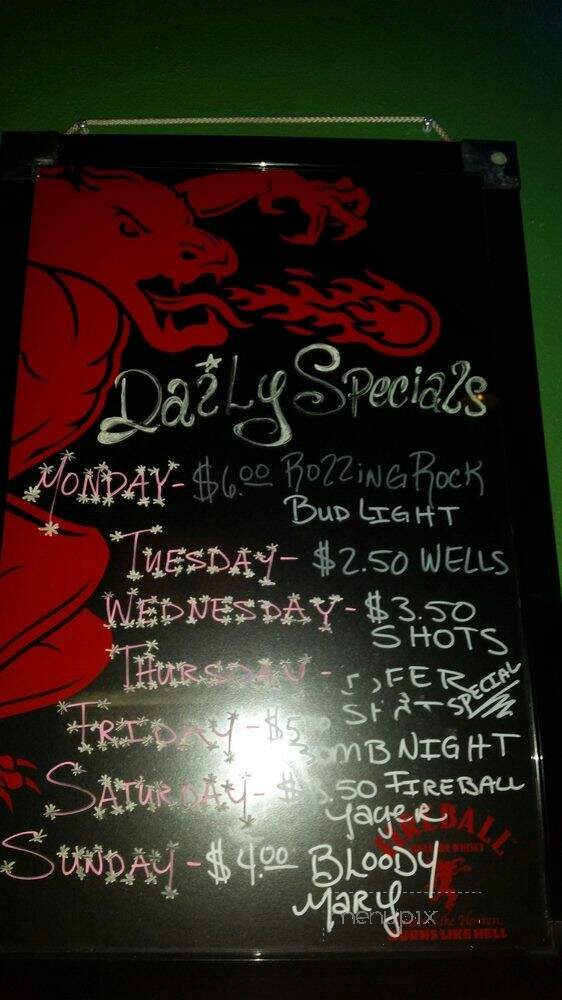 Daily Specials
MONDAY - $6.00 Rolling Rock
BUD LIGHT
TUESDAY - $2.50 WELLS
WEDNESDAY - $3.50
SHOTS
THURSDAY - FER
SPECIAL
FRIDAY - $5
BOMB NIGHT
SATURDAY - $ .50 FIREBALL
Yager
SUNDAY - $4.00 BLOODY
MARY
FIREBALL
menupix
BURNS LIKE HELL